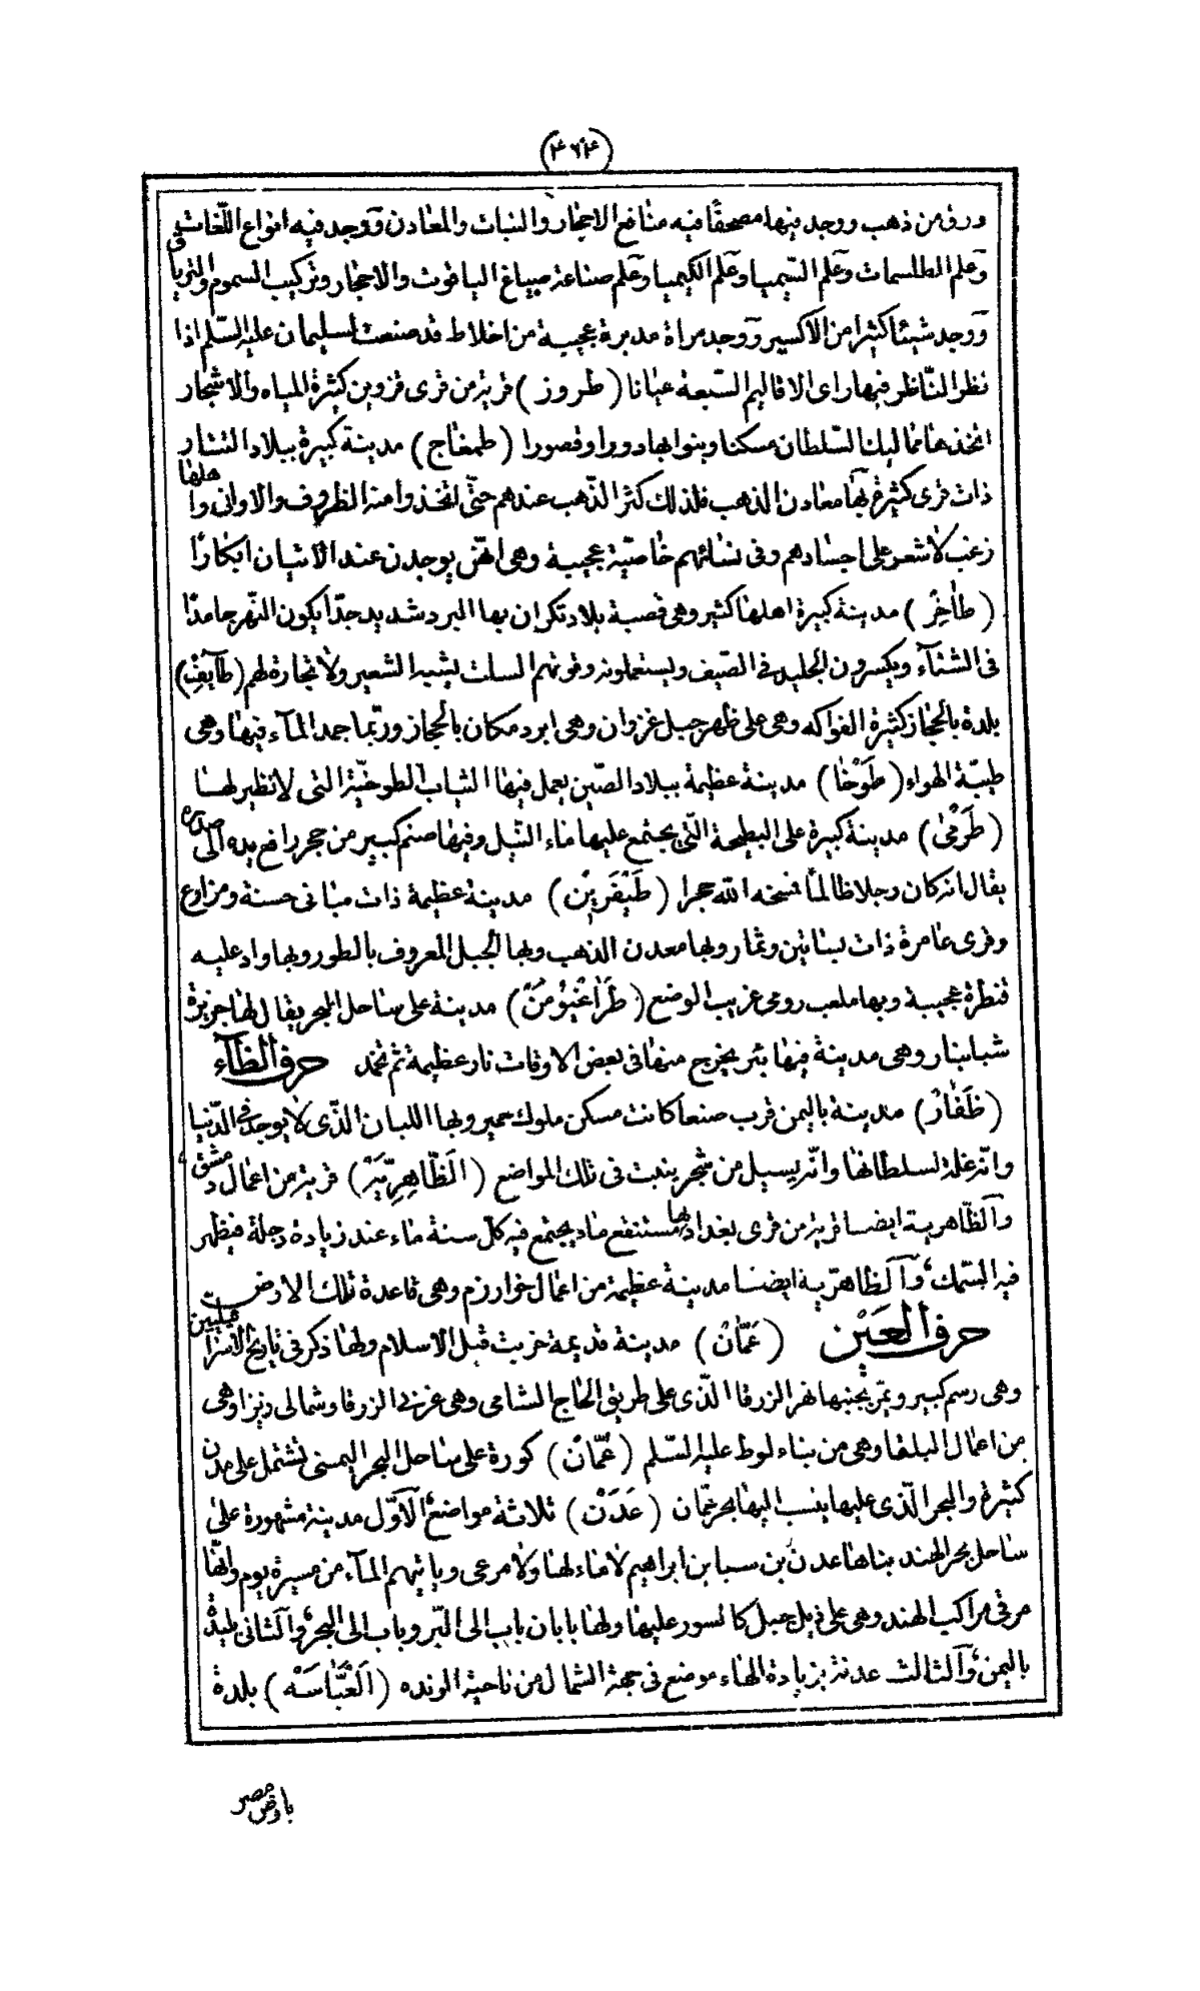 (٤٦٤)
ورق من ذهب ووجد فيها مصحفًا فيه منافع الاحجار والنبات والمعادن ووجد فيه انواع اللّغات
وعلم الطلسمات وعلم السّيميا وعلم الكيميا وعلم صناعة صباغ الياقوت والاحجار وتركيب السموم والترياق
ووجد شيئا كثيرا من الاكسير ووجد مراة مدبرة عجيبة من اخلاط قد صنعت لسليمان عليه السّلم اذا
نظر النّاظر فيها راى الاقاليم السّبعة عيانا (طروز) قرية من قرى قزوين كثيرة المياه والاشجار
اتخذها مماليك السّلطان مسكنا وبنوا بها دورا وقصورا (طمغاج) مدينة كبيرة ببلاد التتار
ذات قرى كثيرة بها معادن الذهب فلذلك كثر الذّهب عندهم حتّى اتخذوا منه الظروف والاوانى واهلها
زعب لا شعر على اجسادهم وفى نسائهم خاصيّة عجيبة وهى انهنّ يوجدن عند الاتيان ابكارًا
(طاخر) مدينة كبيرة اهلها كثير وهى قصبة بلاد تكران بها البرد شديد جدّا يكون النّهر جامدًا
فى الشتاء ويكسرون الجليد فى الصّيف ويستعملونه وقوتهم السلت يشبه الشعير ولا تجارة لهم (طايف)
بلدة بالحجاز كثيرة الفواكه وهى على ظهر جبل غزوان وهى ابرد مكان بالحجاز وربّما جمد الماء فيها وهى
طيبة الهواء (طوخا) مدينة عظيمة ببلاد الصّين يعمل فيها الثياب الطوخيّة التى لا نظير لها
(طرفى) مدينة كبيرة على البطيحة الّتى يجتمع عليها ماء النّيل وفيها صنم كبير من حجر رافع يده الى صدره
يقال انه كان رجلا ظالمًا فمسخه الله حجرا (طيقرين) مدينة عظيمة ذات مبانى حسنة ومزارع
وقرى عامرة ذات بساتين وثمار وبها معدن الذهب وبها الجبل المعروف بالطور وبها واد عليه
قنطرة عجيبة وبها ملعب رومى غريب الوضع (طراغنيومن) مدينة على ساحل البحر يقال لها جزيرة
شبابنار وهى مدينة فيها بئر يخرج منها فى بعض الاوقات نار عظيمة ثم تخمد حرف الظاء
(ظفار) مدينة باليمن قرب صنعا كانت مسكن ملوك حمير وبها اللبان الّذى لا يوجد فى الدّنيا
وانّه غلة لسلطانها وانّه يسيل من شجر ينبت فى تلك المواضع (الظّاهريّة) قرية من اعمال دمشق
والظّاهرية ايضا قرية من قرى بغداد بها مستنقع ماء يجتمع فيه كلّ سنة ماء عند زيادة دجلة فيظهر
فيه السّمك والظاهريّة ايضا مدينة عظيمة من اعمال خوارزم وهى قاعدة تلك الارض
حرف العين (عمّان) مدينة قديمة خربت قبل الاسلام ولها ذكر فى تاريخ الاسرائيليين
وهى رسم كبير ويمرّ بجنبها نهر الزرقا الّذى على طريق الحاج الشامى وهى غربى الزرقا وشمالى ديزا وهى
من اعمال البلقا وهى من بناء لوط عليه السّلم (عمّان) كورة على ساحل البحر اليمنى تشتمل على مدن
كثيرة والبحر الّذى عليها ينسب اليها بحر عمّان (عدن) ثلاثة مواضع الاوّل مدينة مشهورة على
ساحل بحر الهند بناها عدن بن سبا بن ابراهيم لا ماء لها ولا مرعى ويأتيهم الماء من مسيرة يوم وانّها
مرفى مراكب الهند وهى على ذيل جبل كالسور عليها ولها بابان باب الى البّر وباب الى البحر والثانى بليدة
باليمن والثالث عدنة بزيادة الهاء موضع فى جهة الشمال من ناحية الونده (العبّاسه) بلدة
بارض مصر